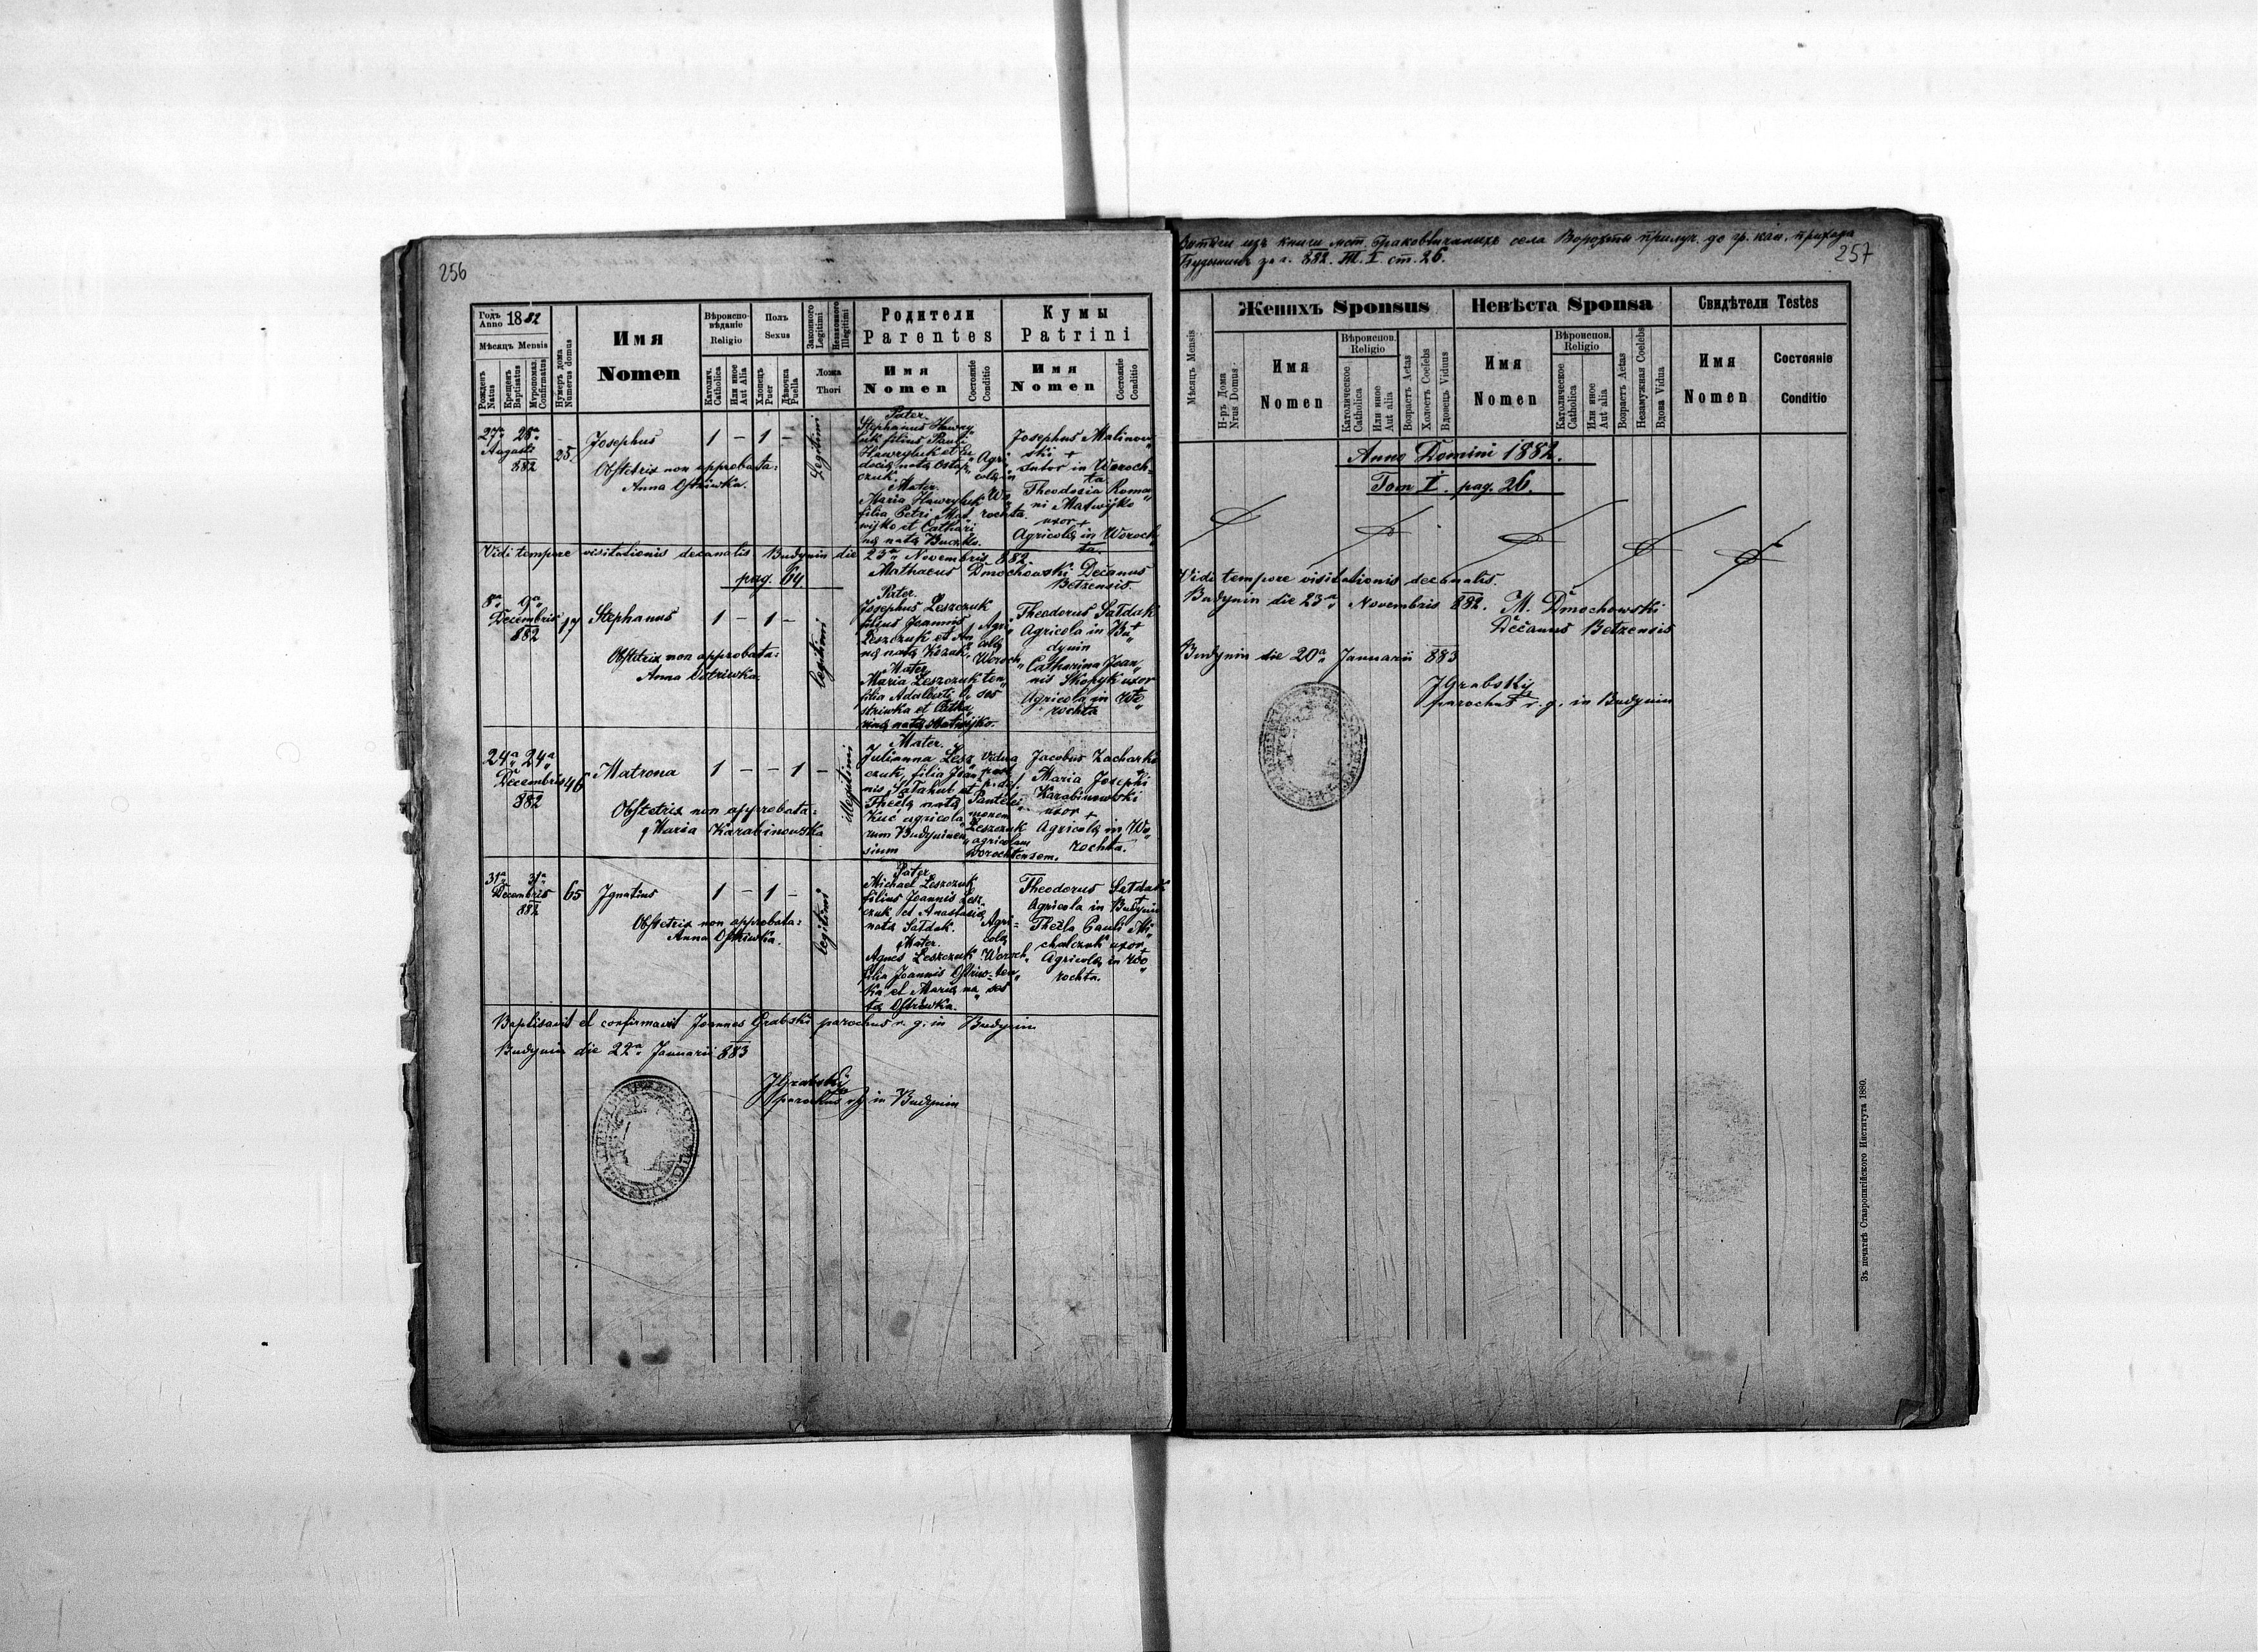 256
Годъ Anno 1882
Мѣсяцъ Mensis
Рожденъ Natus
Крещенъ Baptisatus
Мѵропомаз. Confirmatus
Нумеръ дома Numerus domus
Имя
Nomen
Вѣроиспо-
вѣданіе
Religio
Католич. Catholica
Или иное Aut Alia
Полъ
Sexus
Хлопецъ Puer
Дѣвочка Puella
Законного Legitimi
Незаконного Illegitimi
Ложа
Thori
Родители
Parentes
Имя
Nomen
Состояніе Conditio
Кумы
Patrini
Имя
Nomen
Состояніе Conditio
27a 28a
Augusti
882
25
Josephus
1 – 1 –
Legitimi
Obstetrix non approbata:
Anna Ostriwka.
Pater.
Stephanus Hawry
luk filius Pauli
Hawryluk et Eu
dociæ natæ Ostap
czuk.
Mater.
Maria Hawryluk
filia Petri Mat
wijko et Cathari
næ natæ Buczko.
Agri
colæ in
Wo
rochta.
Josephus Malinow
ski +
sutor in Woroch
ta
Theodosia Roma
ni Matwijko
uxor +
Agricolæ in Woroch
ta.
Vidi tempore visitationis decanalis Budynin die 23a Novembris 882
Mathaeus Dmochowski Decanus
Betzensis.
pag. 64.
8a 9a
Decembris
882
17
Stephanus
1 – 1 –
legitimi
Obstetrix non approbata:
Anna Ostriwka.
Pater.
Josephus Leszczuk
filius Joannis
Leszczuk et An
næ natæ Kozak.
Mater
Maria Leszczuk
filia Adalberti O
striwka et Catha
rinæ natæ Matwijko.
Agri
colæ
Woroch
ten
ses
Theodorus Sałdak
Agricola in Bu
dynin
Catharina Joan
nis Skopyk uxor
Agricolæ in Wo
rochta
24a 24a
Decembris
882
46
Matrona
1 – – 1 –
illegitimi
Obstetrix non approbata:
Maria Karabinowska
Mater.
Julianna Lesz
czuk, filia Joan
nis et
Theclæ natæ
Kuc agricola
rum Budyninen
sium
Vidua
post
Pantelei
monem
Leszczuk
agricolam
Worochtensem.
Jacobus Zacharko
Maria Josephi
Karabinowski
uxor +
Agricolæ in Wo
rochta.
31a 31a
Decembris
882
65
Ignatius
1 – 1 –
legitimi
Obstetrix non approbata:
Anna Ostriwka.
Pater
Michael Leszczuk
filius Joannis Lesz
czuk et Anastasiæ
natæ Sałdak.
Mater.
Agnes Leszczuk
filia Joannis Ostriw
ka et Mariæ na
tæ Ostriwka.
Agri
colæ
Woroch
ten
ses
Theodorus Sałdak
Agricola in Budynin
Thecla Pauli Mi
chalczuk uxor +
Agricolæ in Wo
rochta.
Baptisavit et confirmavit Joannes Grabski parochus r. g. in Budynin
Budynin die 22a Januarii 883
JGrabskij
parochus r. g. in Budynin
257
книги села Ворохты прилуч. до гр. кат. прихода
за г. 882. Т. I. ст. 26.
Мѣсяцъ Mensis
Н-ръ Дома Nrus Domus
Женихъ Sponsus
Имя
Nomen
Вѣроиспов. Religio
Католическое Catholica
Или иное Aut alia
Возрастъ Aetas
Холостъ Coelebs
Вдовецъ Viduus
Невѣста Sponsa
Имя
Nomen
Вѣроиспов. Religio
Католическое Catholica
Или иное Aut alia
Возрастъ Aetas
Незамужная Coelebs
Вдова Vidua
Свидѣтели Testes
Имя
Nomen
Состояніе
Conditio
Anno Domini 1882.
Tom I. pag. 26.
Vidi tempore visitationis decanalis.
Budynin die 23a Novembris 882. M. Dmochowski
Decanus Betzensis
Budynin die 20a Januarii 883
JGrabskij
parochus r. g. in Budynin
Зъ печатнѣ Ставропигійского Института 1880.